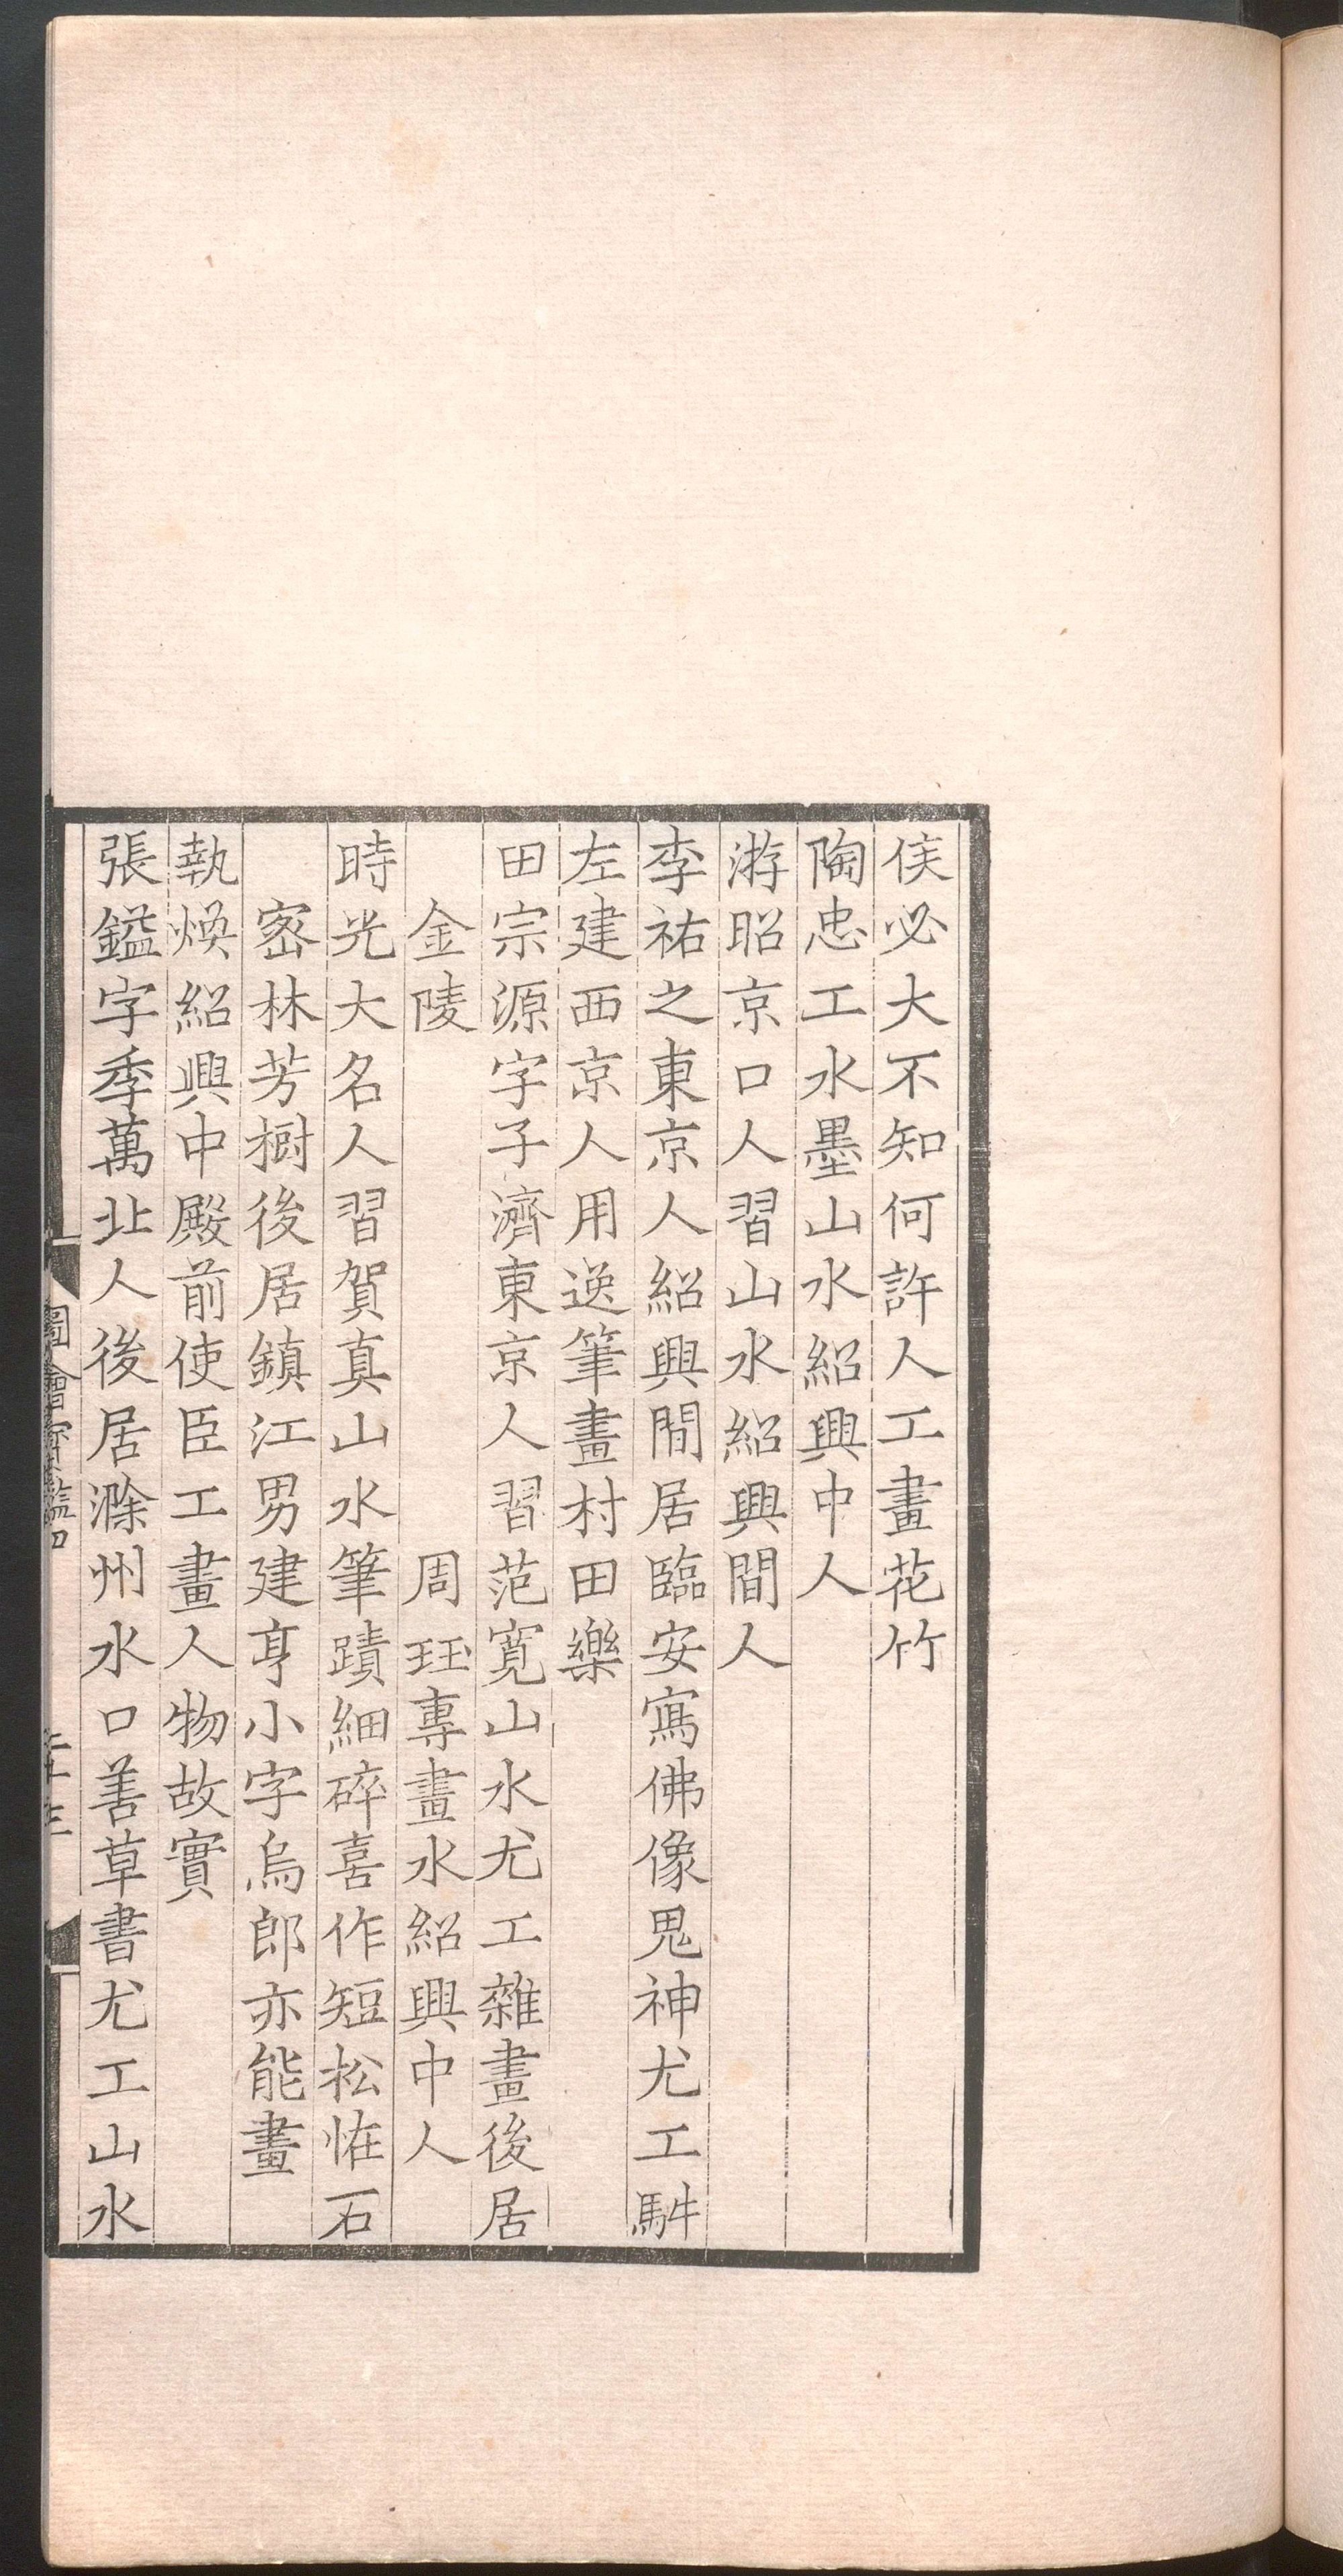 侯必大不知何許人工畫花竹
陶忠工水墨山水紹興中人
游昭京口人習山水紹興間人
李祐之東京人紹興閒居臨安寫佛像鬼神尤工馿
左建西京人用逸筆畫村田樂
田宗源字子濟東京人習范寬山水尤工雜畫後居
金陵　周珏專畫水紹興中人
時光大名人習賀真山水筆蹟細碎喜作短松恠石
密林芳樹後居鎮江男建亨小字烏郎亦能畫
執煥紹興中殿前使臣工畫人物故實
張鎰字季萬北人後居滁州水口善草書尤工山水
圖繪寶鑑四